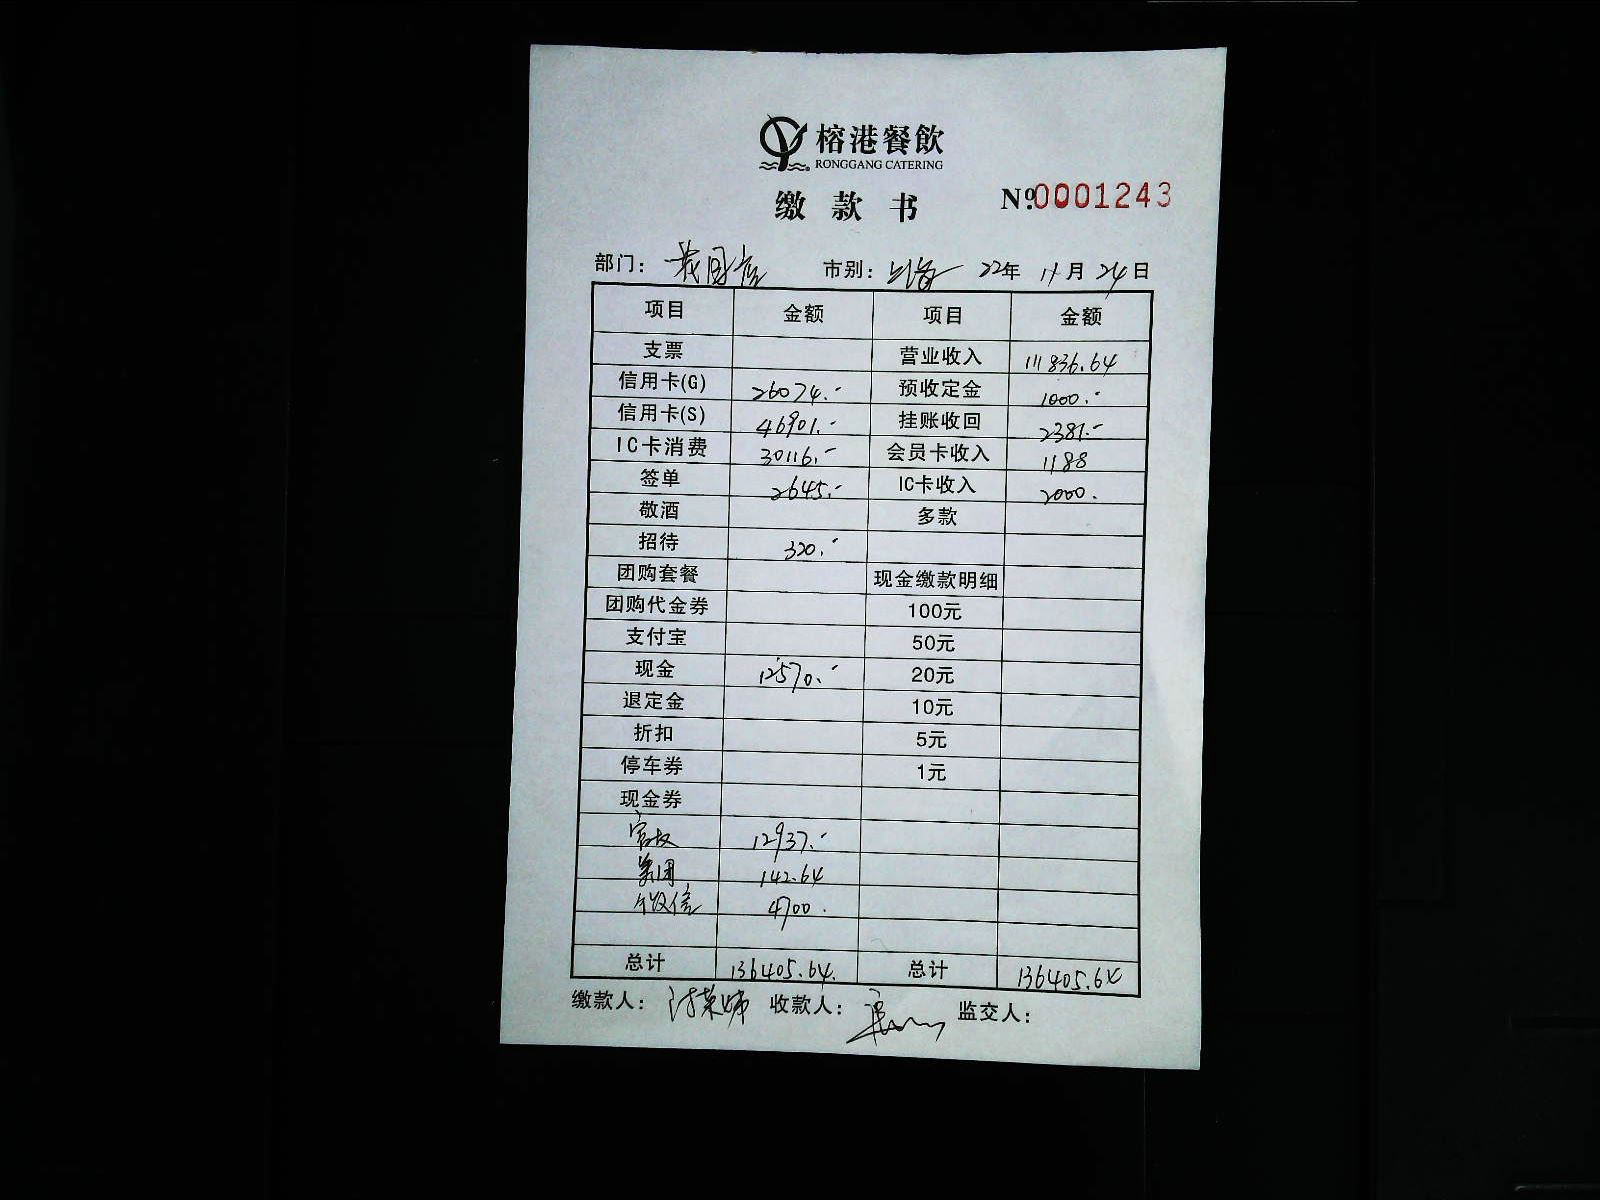 榕港餐飲
RONGGANG CATERING
缴款书 №0001243
部门： 市别： 22年 11月 24日
项目 金额 项目 金额
支票 营业收入 111836.64
信用卡(G) 26074.- 预收定金 1000.-
信用卡(S) 46901.- 挂账收回 2381.-
IC卡消费 30116.- 会员卡收入 1188
签单 2645.- IC卡收入 2000.
敬酒 多款
招待 320.-
团购套餐 现金缴款明细
团购代金券 100元
支付宝 50元
现金 12570.- 20元
退定金 10元
折扣 5元
停车券 1元
现金券
12937.-
美团 142.64
微信 4700.
总计 136405.64. 总计 136405.64
缴款人： 收款人： 监交人：